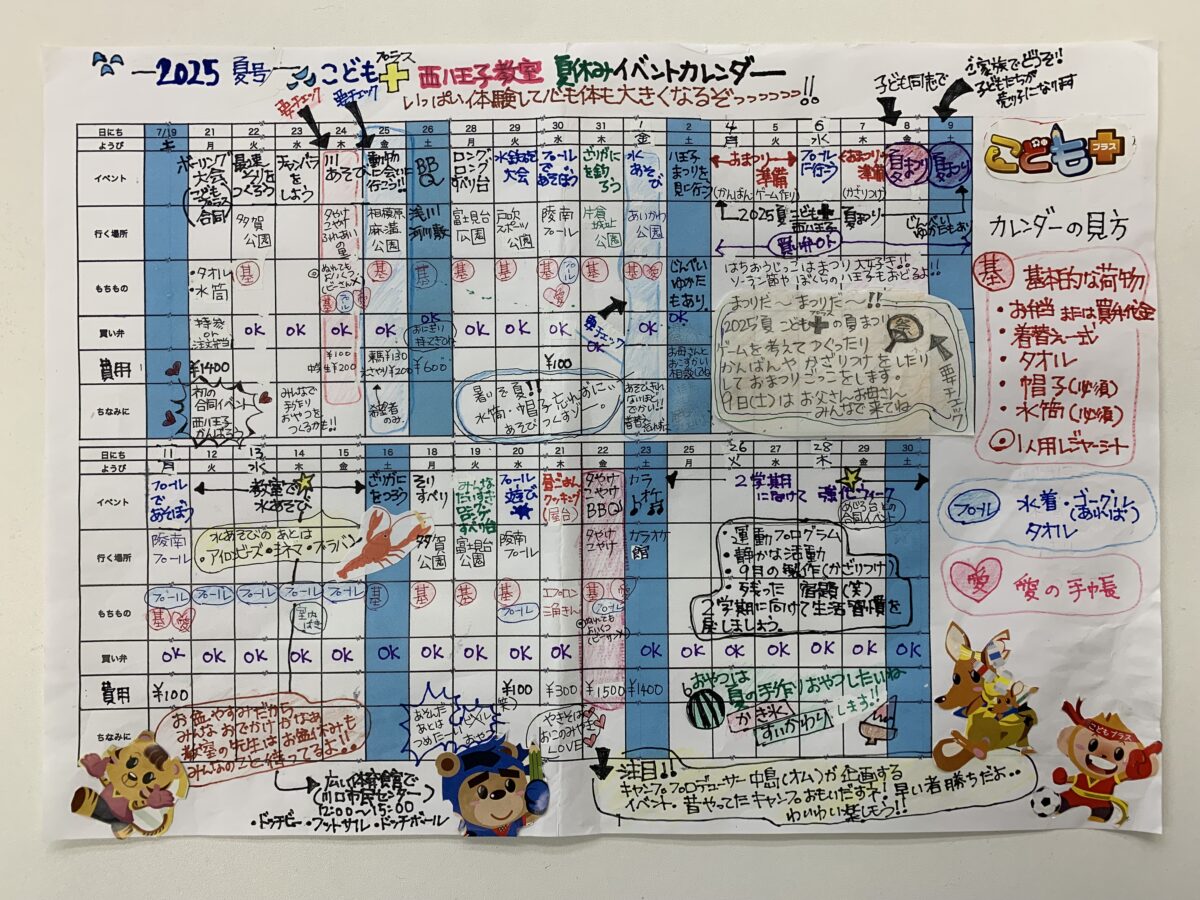 2025 夏号 こども+プラス 西八王子教室 夏休みイベントカレンダー
いっぱい体験して心も体も大きくなるぞっっっっっっ!!
要チェック
要チェック
子ども同志で
ご家族でどうぞ!
子どもたちが
売り子になります
日にち 7/19 21 22 23 24 25 26 28 29 30 31 1 2 4 5 6 7 8 9
ようび 土 月 火 水 木 金 土 月 火 水 木 金 土 月 火 水 木 金 土
イベント
ボーリング
大会
こども
プラス
合同
チャンバラ
をしよう
川
あそび
動物
に会いに
行こう!!
BBQ
ロング
ロング
すべり台
水鉄砲
大会
プール
であそぼう
ざりがに
を釣ろう
水
あそび
八王子
まつりを
見に行こう
おまつり
準備
(かんばん・ゲーム作り)
プール
に行こう
おまつり
準備
(かざりつけ)
夏まつり
夏まつり
行く場所
多賀
公園
夕やけ
小やけ
ふれあいの
里
相模原
麻溝
公園
浅川
河川敷
富士見台
公園
戸吹
スポーツ
公園
陵南
プール
片倉
城址
公園
あいかわ
公園
2025夏 こども+ 西八王子 夏まつり
買い弁OK
じんべい
ゆかたもあり
もちもの
・タオル
・水筒
基 基 基 基 基 基 基 プール 愛 基 基 愛
じんべい
ゆかた
もあり
はちおうじっこはまつり大好き!!
ソーラン節やぼくらの八王子もおどるよ!!
買い弁
OK OK OK OK OK OK OK OK OK OK OK
おにぎり
持ってきて
要チェック
費用
¥1400
¥100
中学生¥200
乗馬¥130
えさやり¥200
¥600
¥100
お母さんと
おこずかい
相談してね
ちなみに
初の
合同イベント
西八王子
がんばろう
みんなで
手作り
おやつを
つくるかも!!
希望者
のみ
暑いぞ夏!!
水筒・帽子忘れずにぃ
あそびつくすゾー。
まつりだ~まつりだ~!!
2025夏 こども+プラスの夏まつり
祭
ゲームを考えてつくったり
かんばんやかざりつけをしたり
しておまつりごっこをします。
9日(土)はお父さんお母さん
みんなで来てね
要チェック
こどもプラス
カレンダーの見方
基 基本的な荷物
・お弁当または買弁代金
・着替え一式
・タオル
・帽子(必須)
・水筒(必須)
1人用レジャーシート
プール 水着・ゴーグル
(あれば)
タオル
愛 愛の手帳
日にち 11 12 13 14 15 16 18 19 20 21 22 23 25 26 27 28 29 30
ようび 月 火 水 木 金 土 月 火 水 木 金 土 月 火 水 木 金 土
イベント
プール
で
あそぼう
教室で
水あそび
ざりがに
をつろう
そり
すべり
みんな
だいすき
すべり台
プール
遊び
昼ごはん
クッキング
(屋台)
夕やけ
こやけ
BBQ
カラオケ
2学期
に向けて
強化ウィーク
めじろ台との
合同イベント
行く場所
陵南
プール
水あそびのあとは
・アイロンビーズ・キネマ・プラバン
多賀
公園
富士見台
公園
陵南
プール
夕やけ
こやけ
カラオケ
館
・運動プログラム
・静かな活動
・9月の製作(かざりつけ)
・残った宿題(笑)
2学期に向けて生活習慣を
戻しましょう。
もちもの
プール プール プール プール プール
基 愛
室内
ばき
基 基 基 基 プール
エプロン
三角きん
基 愛
プール
買い弁
OK OK OK OK OK OK OK OK OK OK OK OK OK OK OK OK OK
費用
¥100
¥100
¥300
¥1500
¥1400
おやつは
夏の手作りおやつしたいね
しよう!!
かき氷
すいかわり
ちなみに
お盆やすみだから
みんなおでかけかなぁ
教室の先生はお盆休みも
みんなのこと待ってるよ!!
あそんだ
あとは
つめた~い
おやつ
やきそば
おこのみやき
LOVE
広い体育館で
(川口市民センター)
12:00~15:00
・ドッヂビー・フットサル・ドッヂボール
注目!!
キャンププロデューサー中島(オム)が企画する
イベント・昔やってたキャンプおもいだすぞ!早い者勝ちだよ..
わいわい楽しもっ!!
こどもプラス